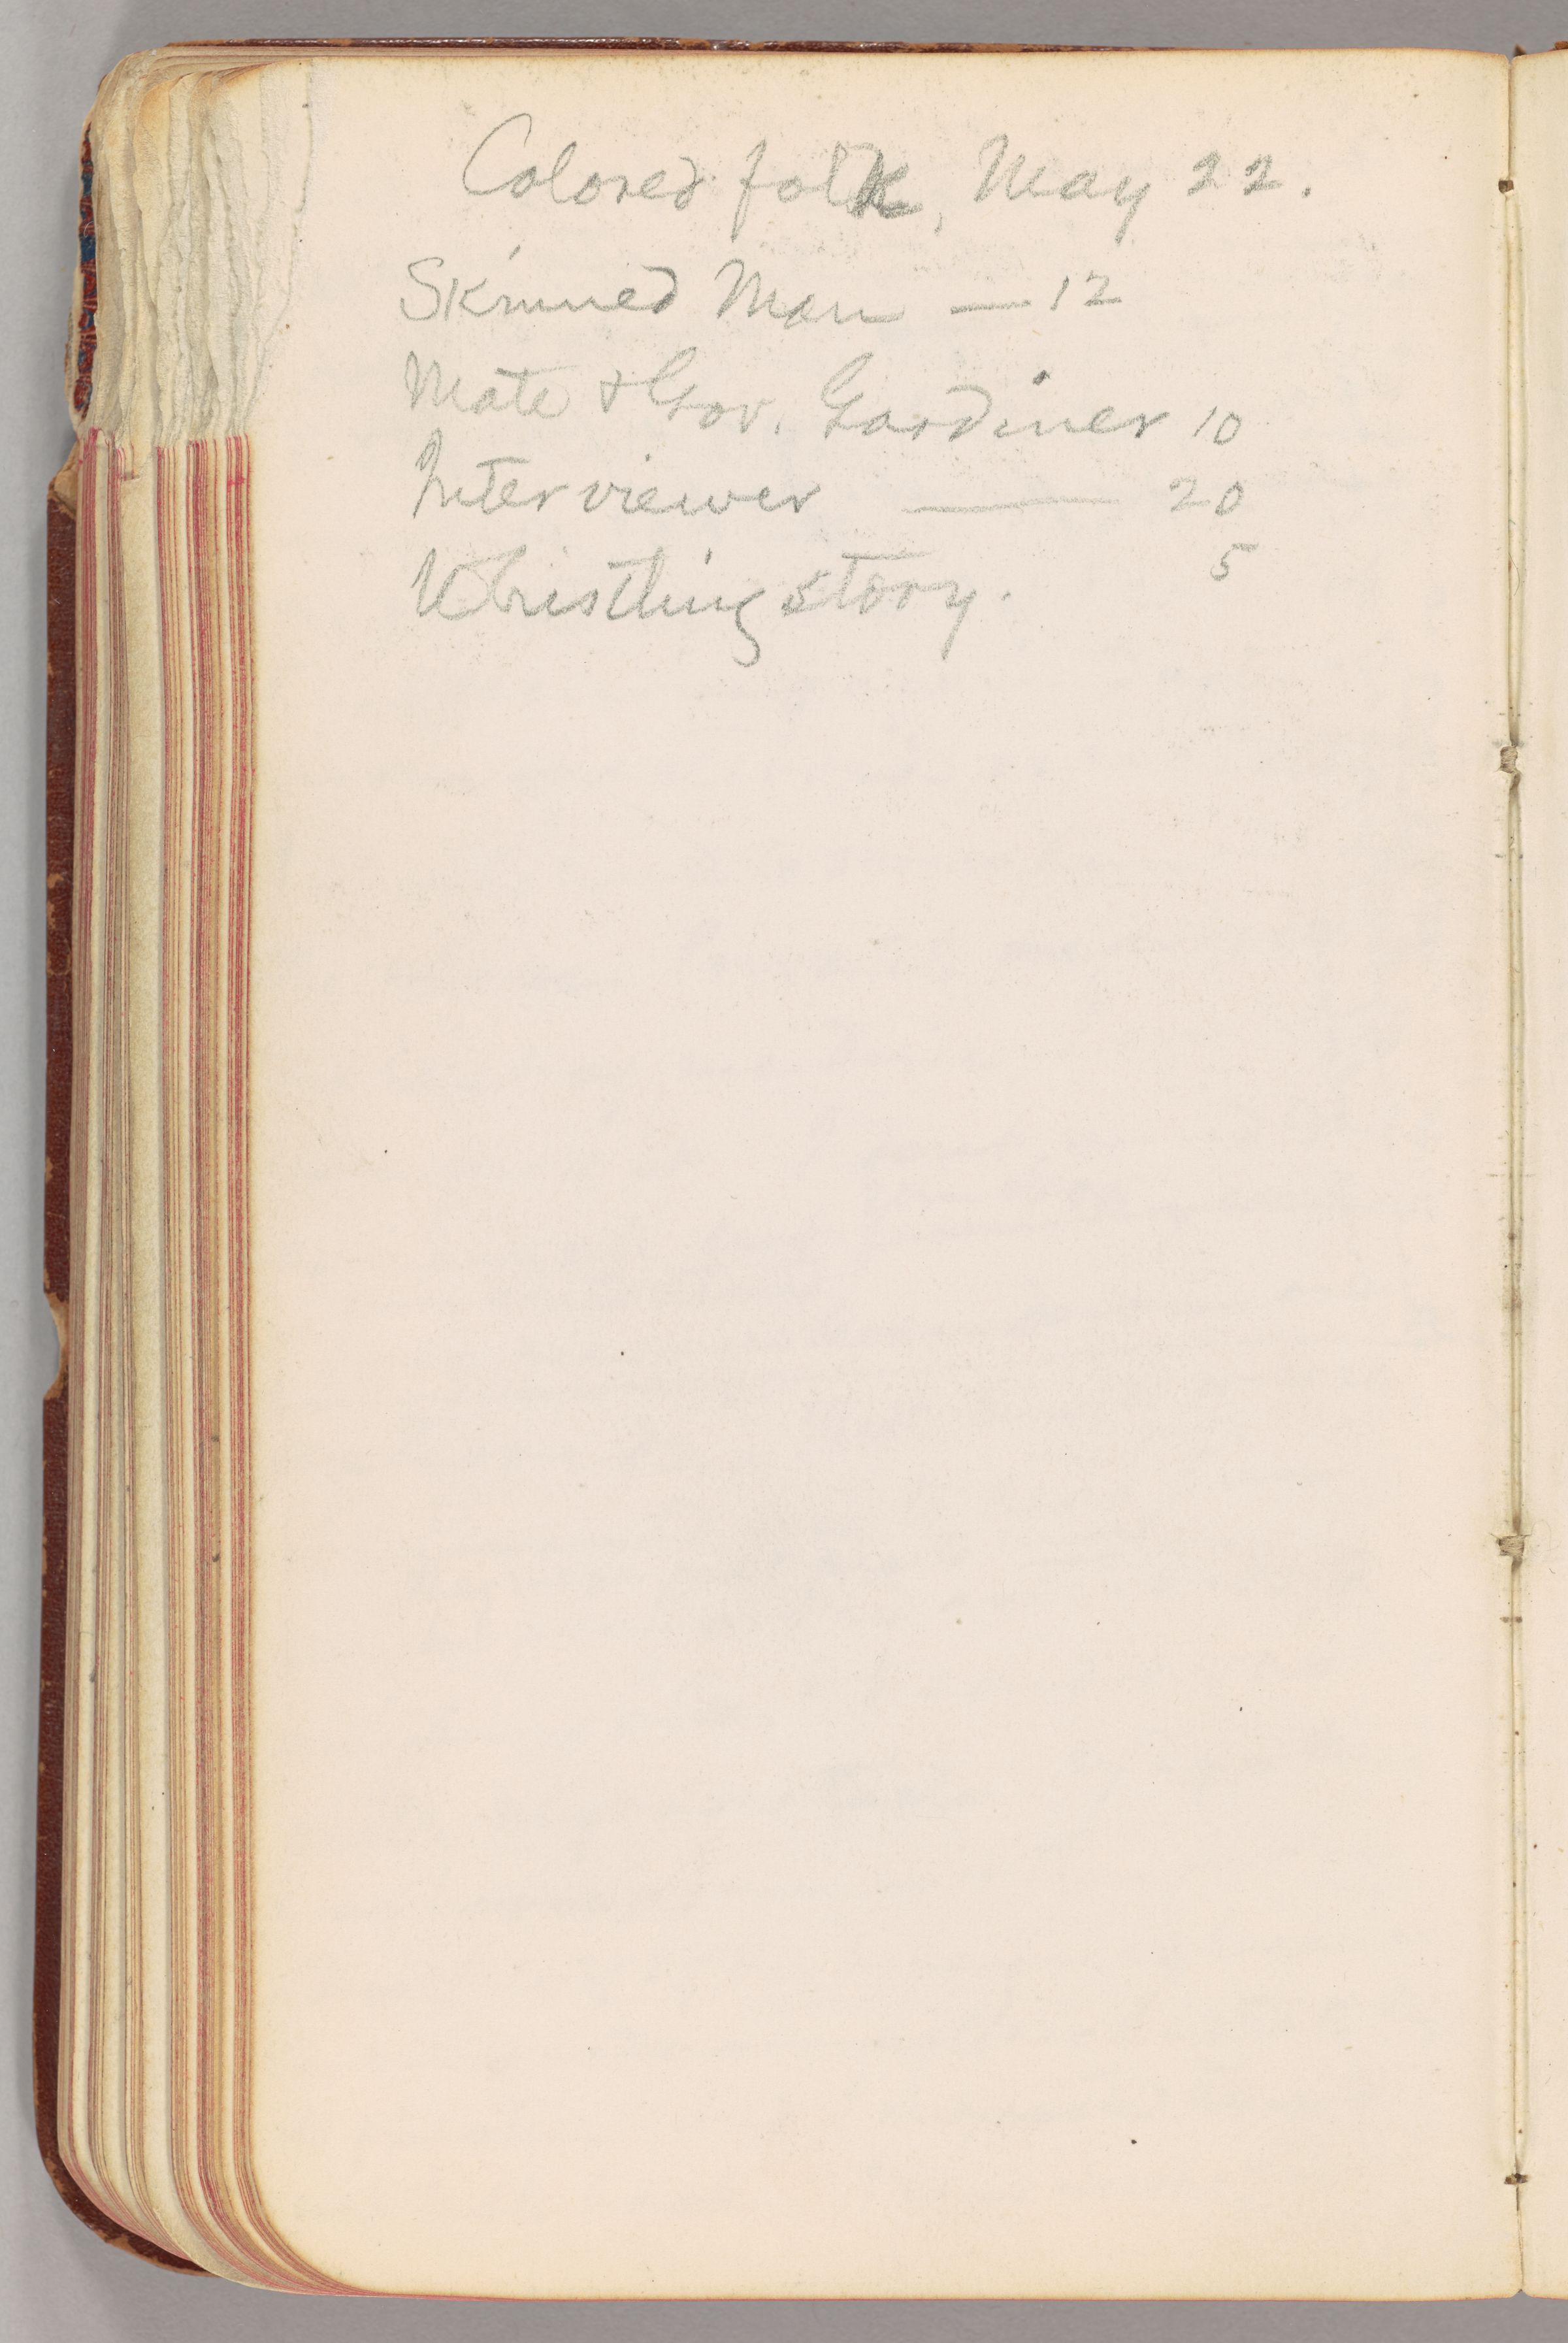 Colored folk, May 22.
Skinned Man — 12
Mate & Gov. Gardiner 10
Interviewer — 20
Whistling story. 5